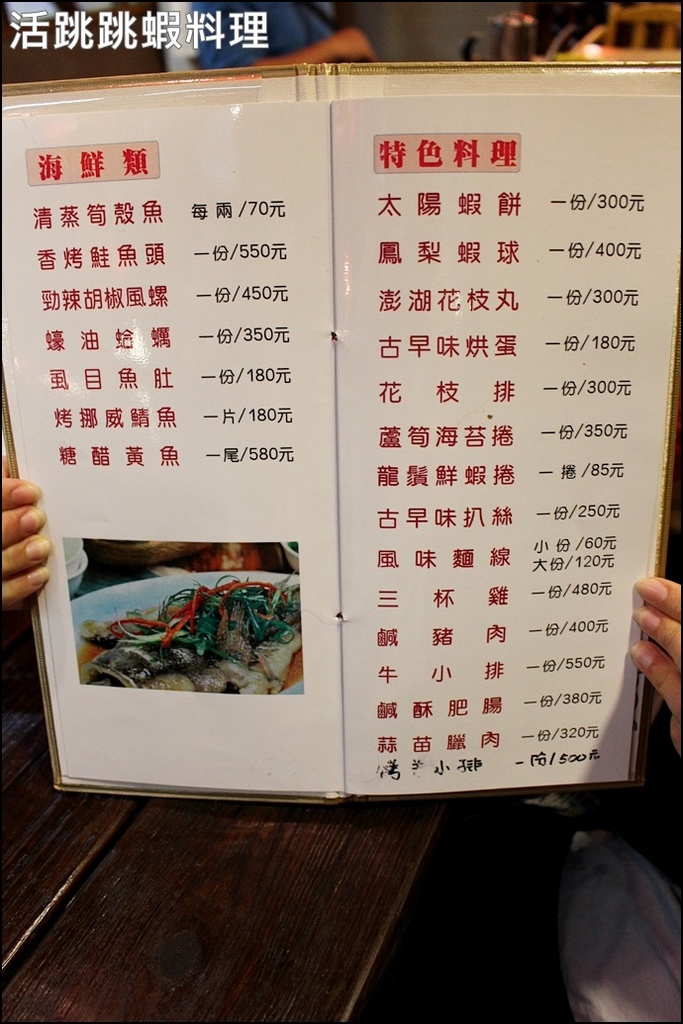 活跳跳蝦料理
海鮮類
清蒸筍殼魚 每兩/70元
香烤鮭魚頭 一份/550元
勁辣胡椒風螺 一份/450元
蠔油蛤蠣 一份/350元
虱目魚肚 一份/180元
烤挪威鯖魚 一片/180元
糖醋黃魚 一尾/580元
特色料理
太陽蝦餅 一份/300元
鳳梨蝦球 一份/400元
澎湖花枝丸 一份/300元
古早味烘蛋 一份/180元
花枝排 一份/300元
蘆筍海苔捲 一份/350元
龍鬚鮮蝦捲 一捲/85元
古早味扒絲 一份/250元
風味麵線 小份/60元
大份/120元
三杯雞 一份/480元
鹹豬肉 一份/400元
牛小排 一份/550元
鹹酥肥腸 一份/380元
蒜苗臘肉 一份/320元
小排 一份/500元